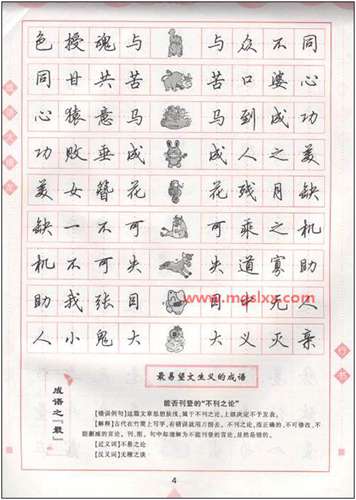 色授魂与 与众不同
同甘共苦 苦口婆心
心猿意马 马到成功
功败垂成 成人之美
美女簪花 花残月缺
缺一不可 可乘之机
机不可失 失道寡助
助我张目 目中无人
人小鬼大 大义灭亲
www.mgslxx.com
最易望文生义的成语
成语之“最”
能否刊登的“不刊之论”
【错误例句】这篇文章思想肤浅，属于不刊之论，上级决定不予发表。
【解释】古代在竹简上写字，有错误就用刀削去。不刊之论，指正确的、不可修改、不
能删减的言论。刊，削。句中却理解为不能刊登的言论，显然是错的。
【近义词】不易之论
【反义词】无稽之谈
4